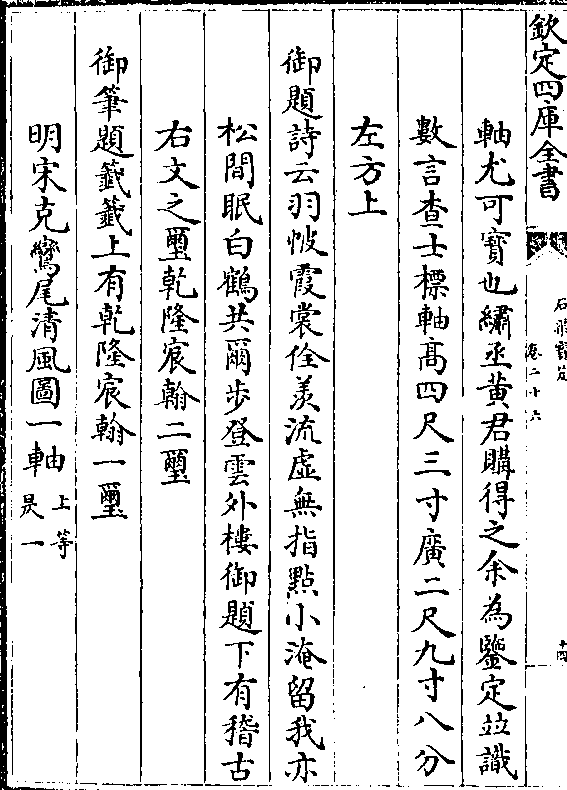 欽定四庫全書
石渠寶笈
卷二十六
十四
軸尤可寶也繡丞黃君購得之余為鑒定並識
數言查士標軸高四尺三寸廣二尺九寸八分
左方上
御題詩云羽帔霞裳佺羡流虛無指點小淹留我亦
松間眠白鶴共爾步登雲外樓御題下有稽古
右文之璽乾隆宸翰二璽
御筆題籤籤上有乾隆宸翰一璽
明宋克鸞尾清風圖一軸 上等
昃一